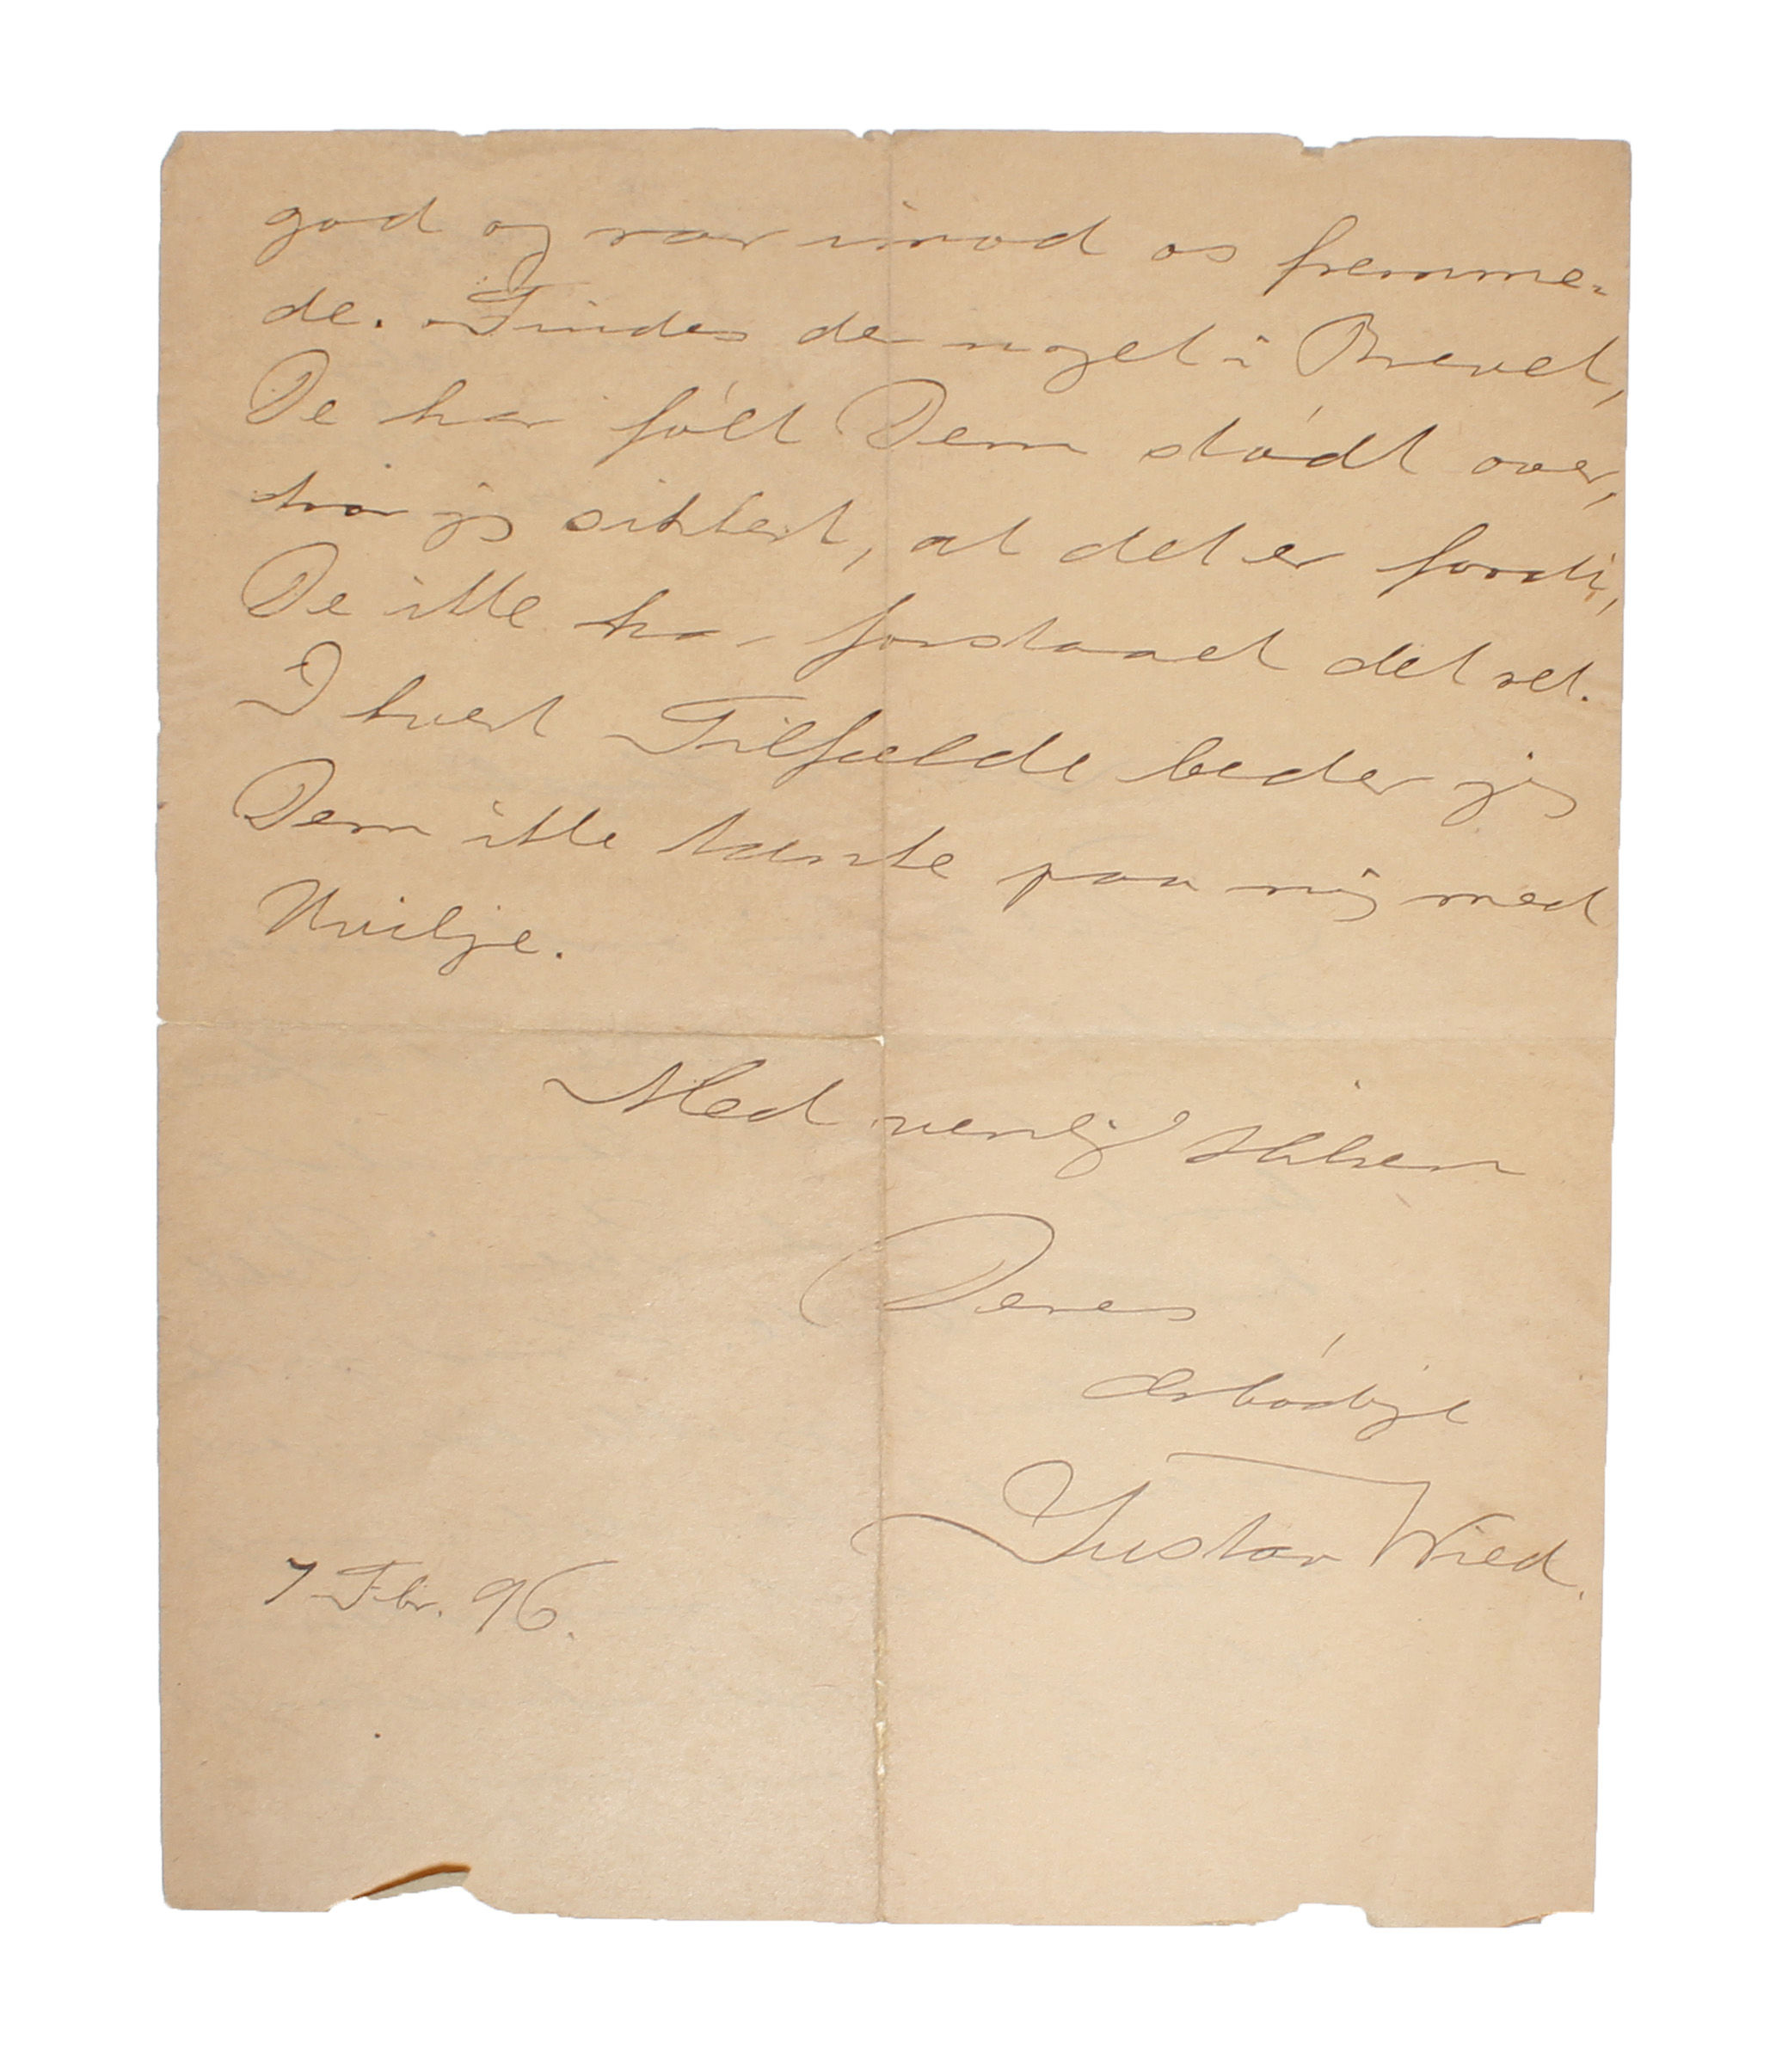 god og rar imod os fremme-
de. Findes der noget i Brevet,
De har følt Dem stødt over,
tror jeg sikkert, at det er fordi,
De ikke har forstaaet det ret.
I hvert Tilfælde beder jeg
Dem ikke tænke paa mig med
Uvilje.
Med venlig Hilsen
Deres
ærbødige
Gustav Wied.
7 Fbr. 96.